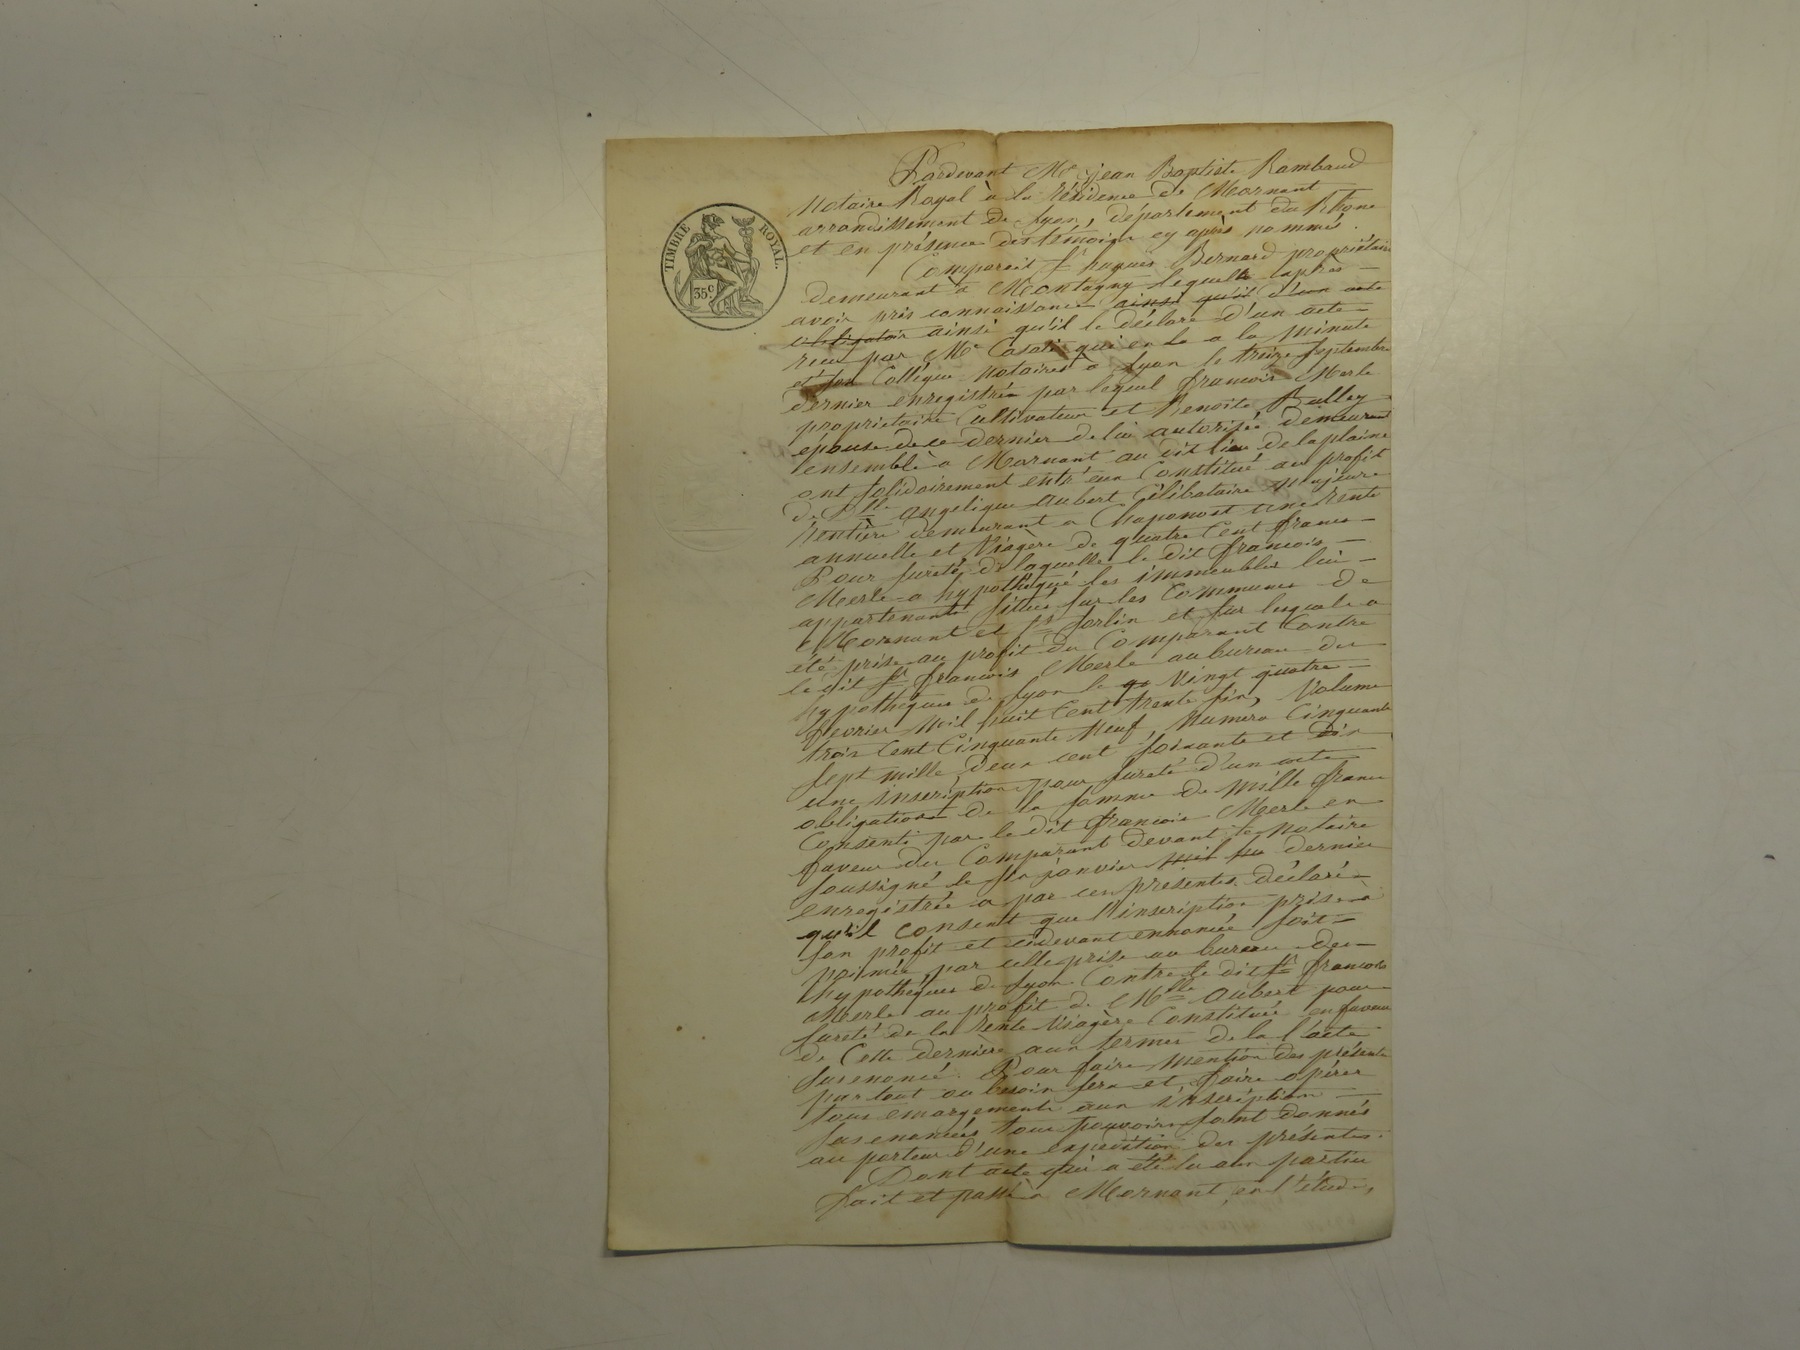 TIMBRE ROYAL.
35 c.
Pardevant Me Jean Baptiste Rambaud
Notaire Royal à la résidence de Mornant
arrondissement de Lyon, département du Rhône
et en présence des témoins cy après nommés.
Comparait Sr Bernard propriétaire
demeurant à Montagny lequelle après
avoir pris connaissance ainsi qu'il d'un acte
obligatoir ainsi qu'il le déclare d'un acte
recu par Me Casati qui en a la minute
et son Collégue Notaires a Lyon le treize Septembre
dernier enregistrée par lequel francois Merle
propriétaire Cultivateur et Benoite Balley
épouse de ce dernier de lui autorisée demeurant
ensemble a Mornant au dit lieu de laplaine
ont solidairement entr'eux Constitué au profit
de Dlle angelique aubert Célibataire Majeure
Rentière demeurant a Chaponost une Rente
annuelle et Viagère de quatre Cent francs
Pour sureté de laquelle le dit francois
Merle a hypothéqué les immeubles lui
appartenants sittués sur les Communes de
Mornant et St Sorlin et sur lesquels a
été prise au profit du Comparant Contre
le dit Sr francois Merle au bureau des
hypothéques de Lyon le Vingt quatre
fevrier Mil huit Cent trente six, Volume
trois Cent Cinquante Neuf, Numero Cinquante
Sept mille deux cent soixante et dix
une inscription pour Sureté d'un acte
obligation de la somme de Mille francs
Consenti par le dit francois Merle en
faveur du Comparant devant le Notaire
Soussigné le six janvier mil dernier
enregistrée a par ces présentes déclaré
qu'il consent que l'inscription prise à
son profit et cidevant ennoncée soit
primée par celle prise au bureau des
hypothéques de Lyon Contre le dit Sr francois
Merle au profit de Mlle aubert pour
Sureté de la Rente Viagère Constituée en faveur
de Cette dernière aux termes de la l'acte
susenoncé. Pour faire Mention des présentes
par tout ou besoin sera et faire opérer
tous emargements aux inscriptions
susenoncées tous pouvoirs sont donnés
au porteur d'une expedition des présentes.
Dont acte qui a été lu aux parties
fait et passé a Mornant, en l'étude,